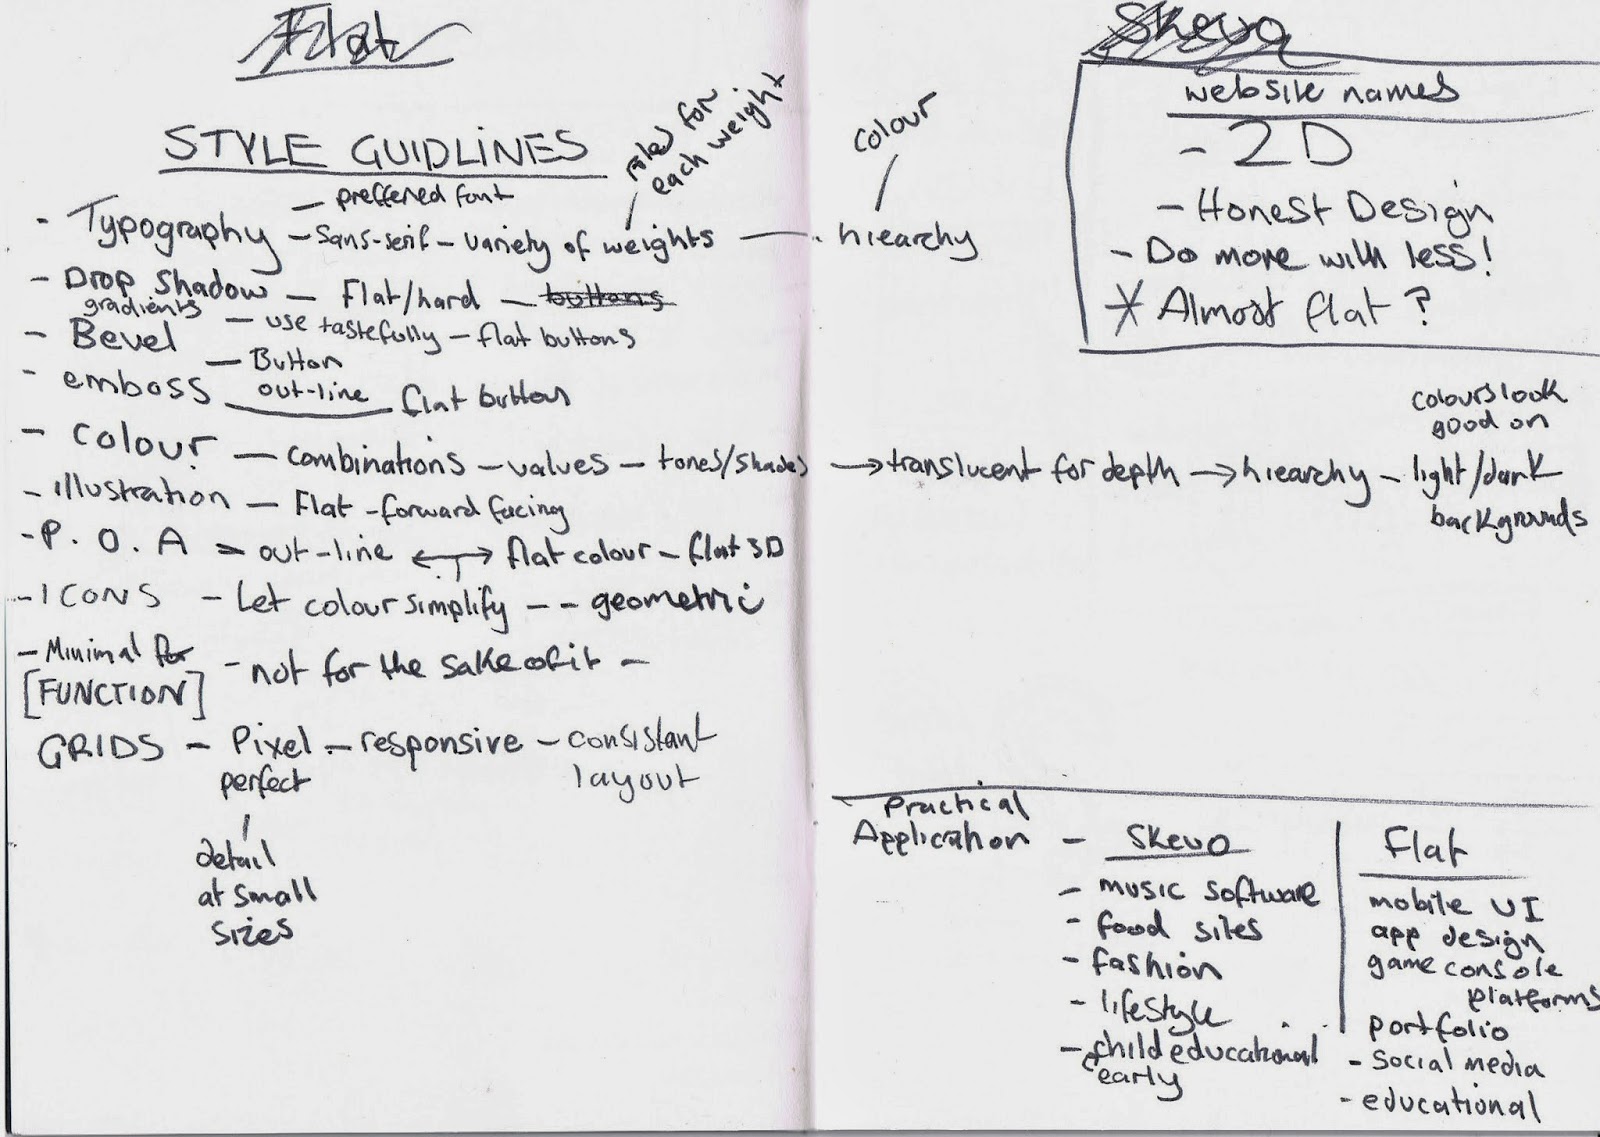 Flat
STYLE GUIDLINES
- Typography - preffered font
- Sans-serif - variety of weights - hiearchy
roles for each weight
colour
- Drop shadow - flat/hard - buttons
gradients - use tastefully - flat buttons
- Bevel
- Button
- emboss out-line flat button
- colour - combinations - values - tones/shades → translucent for depth → hiearchy - light/dark
colours look
good on
backgrounds
- illustration - flat - forward facing
- P.O.A - out-line ↔ flat colour - flat 3D
- ICONS - Let colour simplify - - geometric
- Minimal for - not for the sake of it -
[FUNCTION]
GRIDS - Pixel - responsive - consistant
perfect layout
detail
at small
sizes
Skeuo
website names
- 2D
- Honest Design
- Do more with less!
* Almost flat?
Practical
Application - Skeuo
- music software
- food sites
- fashion
- lifestyle
- child educational
early
Flat
mobile UI
app design
game console
platforms
portfolio
- social media
- educational